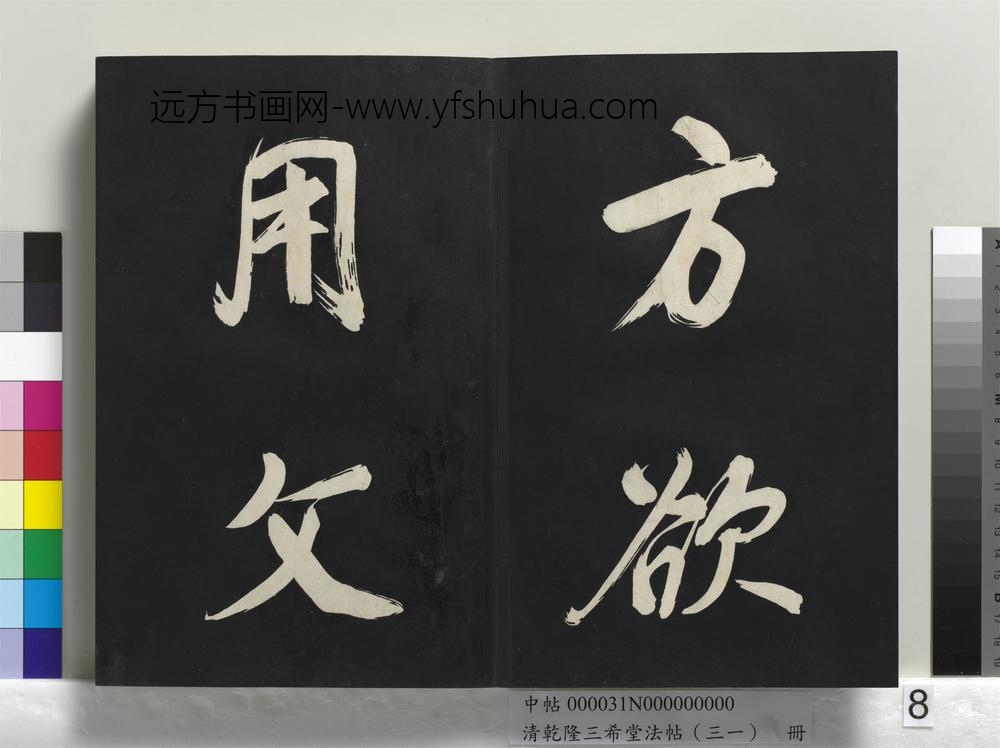 远方书画网-www.yfshuhua.com
方欲
用文
中帖 000031N000000000
清乾隆三希堂法帖（三一） 冊
8